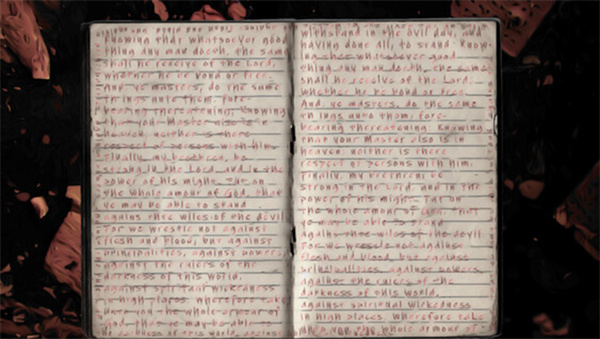 knowing that whatsoever good
thing any man doeth, the same
shall he receive of the Lord,
whether he be bond or free.
And, ye masters, do the same
things unto them, fore-
bearing threatening: knowing
that your Master also is in
heaven neither is there
respect of persons with him.
Finally, my brethren, be
strong in the Lord, and in the
power of his might. Put on
the whole amour of God, that
ye may be able to stand
against thee wiles of the devil
For we wrestle not against
flesh and blood, but against
principalities, against powers,
against the rulers of the
darkness of this world,
against spiritual wickedness
in high places. Wherefore take
unto you the whole armour of
God, that ye may be able to
withstand in the evil day, and
having done all, to stand. Know-
ing that whatsoever good
thing any man doeth, the same
shall he receive of the Lord,
whether he be bond or free.
And, ye masters, do the same
things unto them, fore-
bearing threatening: knowing
that your Master also is in
heaven neither is there
respect of persons with him.
Finally, my brethren be
strong in the Lord, and in the
power of his might. Put on
the whole amour of God, that
ye may be able to stand
against thee wiles of the devil
For we wrestle not against
flesh and blood, but against
principalities, against powers,
against the rulers of the
darkness of this world,
against spiritual wickedness
in high places. Wherefore take
the whole armour of